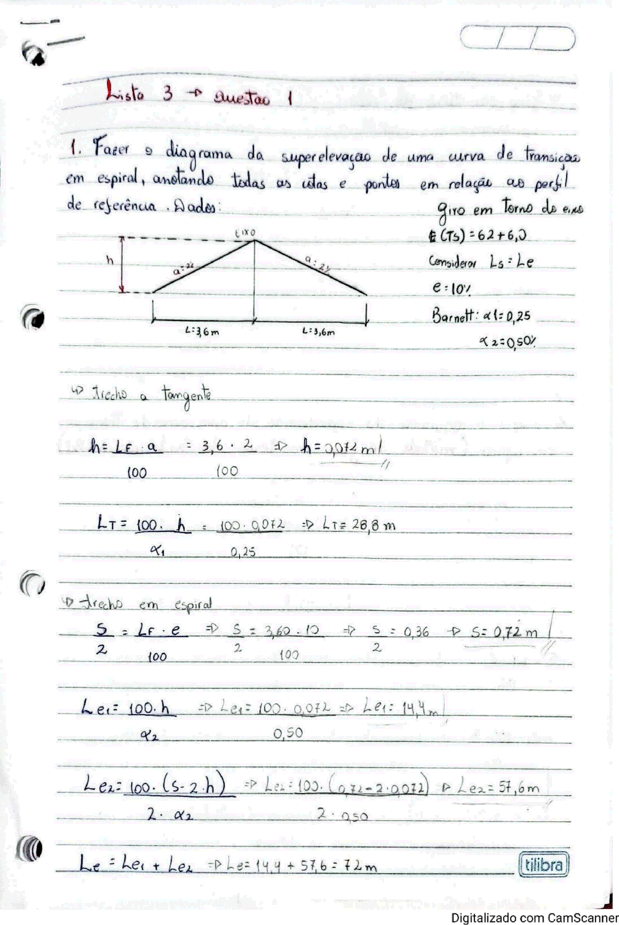 Lista 3 → Questão 1
1. Fazer o diagrama da superelevação de uma curva de transição
em espiral, anotando todas as cotas e pontos em relação ao perfil
de referência. Dados:
giro em torno do eixo
E(Ts) = 62 + 6,0
Considerar Ls = Le
e = 10%
Barnett: α1 = 0,25
α2 = 0,50%
eixo
h
a = 2%
a = 2%
L = 3,6m
L = 3,6m
↳ trecho a tangente
h = LF . a = 3,6 . 2 ⇒ h = 0,072 m
100 100
LT = 100 . h = 100 . 0,072 ⇒ LT = 28,8 m
α1 0,25
↳ trecho em espiral
S = LF . e ⇒ S = 3,60 . 10 ⇒ S = 0,36 ⇒ S = 0,72 m
2 100 2 100 2
Le1 = 100 . h ⇒ Le1 = 100 . 0,072 ⇒ Le1 = 14,4 m
α2 0,50
Le2 = 100 . (S - 2 . h) ⇒ Le2 = 100 . (0,72 - 2 . 0,072) ⇒ Le2 = 57,6 m
2 . α2 2 . 0,50
Le = Le1 + Le2 ⇒ Le = 14,4 + 57,6 = 72 m
tilibra
Digitalizado com CamScanner